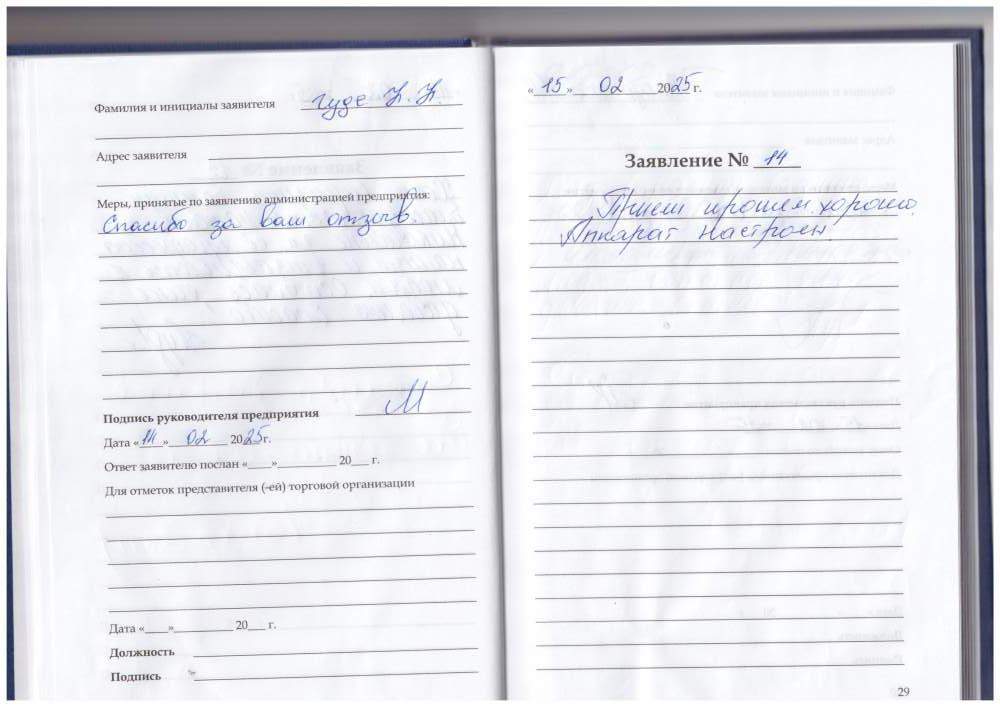 Фамилия и инициалы заявителя Гуде К. К.
Адрес заявителя
Меры, принятые по заявлению администрацией предприятия:
Спасибо за ваш отзыв.
Подпись руководителя предприятия
Дата «14» 02 2025г.
Ответ заявителю послан «____»__________ 20___ г.
Для отметок представителя (-ей) торговой организации
Дата «____»__________ 20___ г.
Должность
Подпись
«15» 02 2025 г.
Заявление № 14
Прием прошел хорошо.
Аппарат настроен.
29